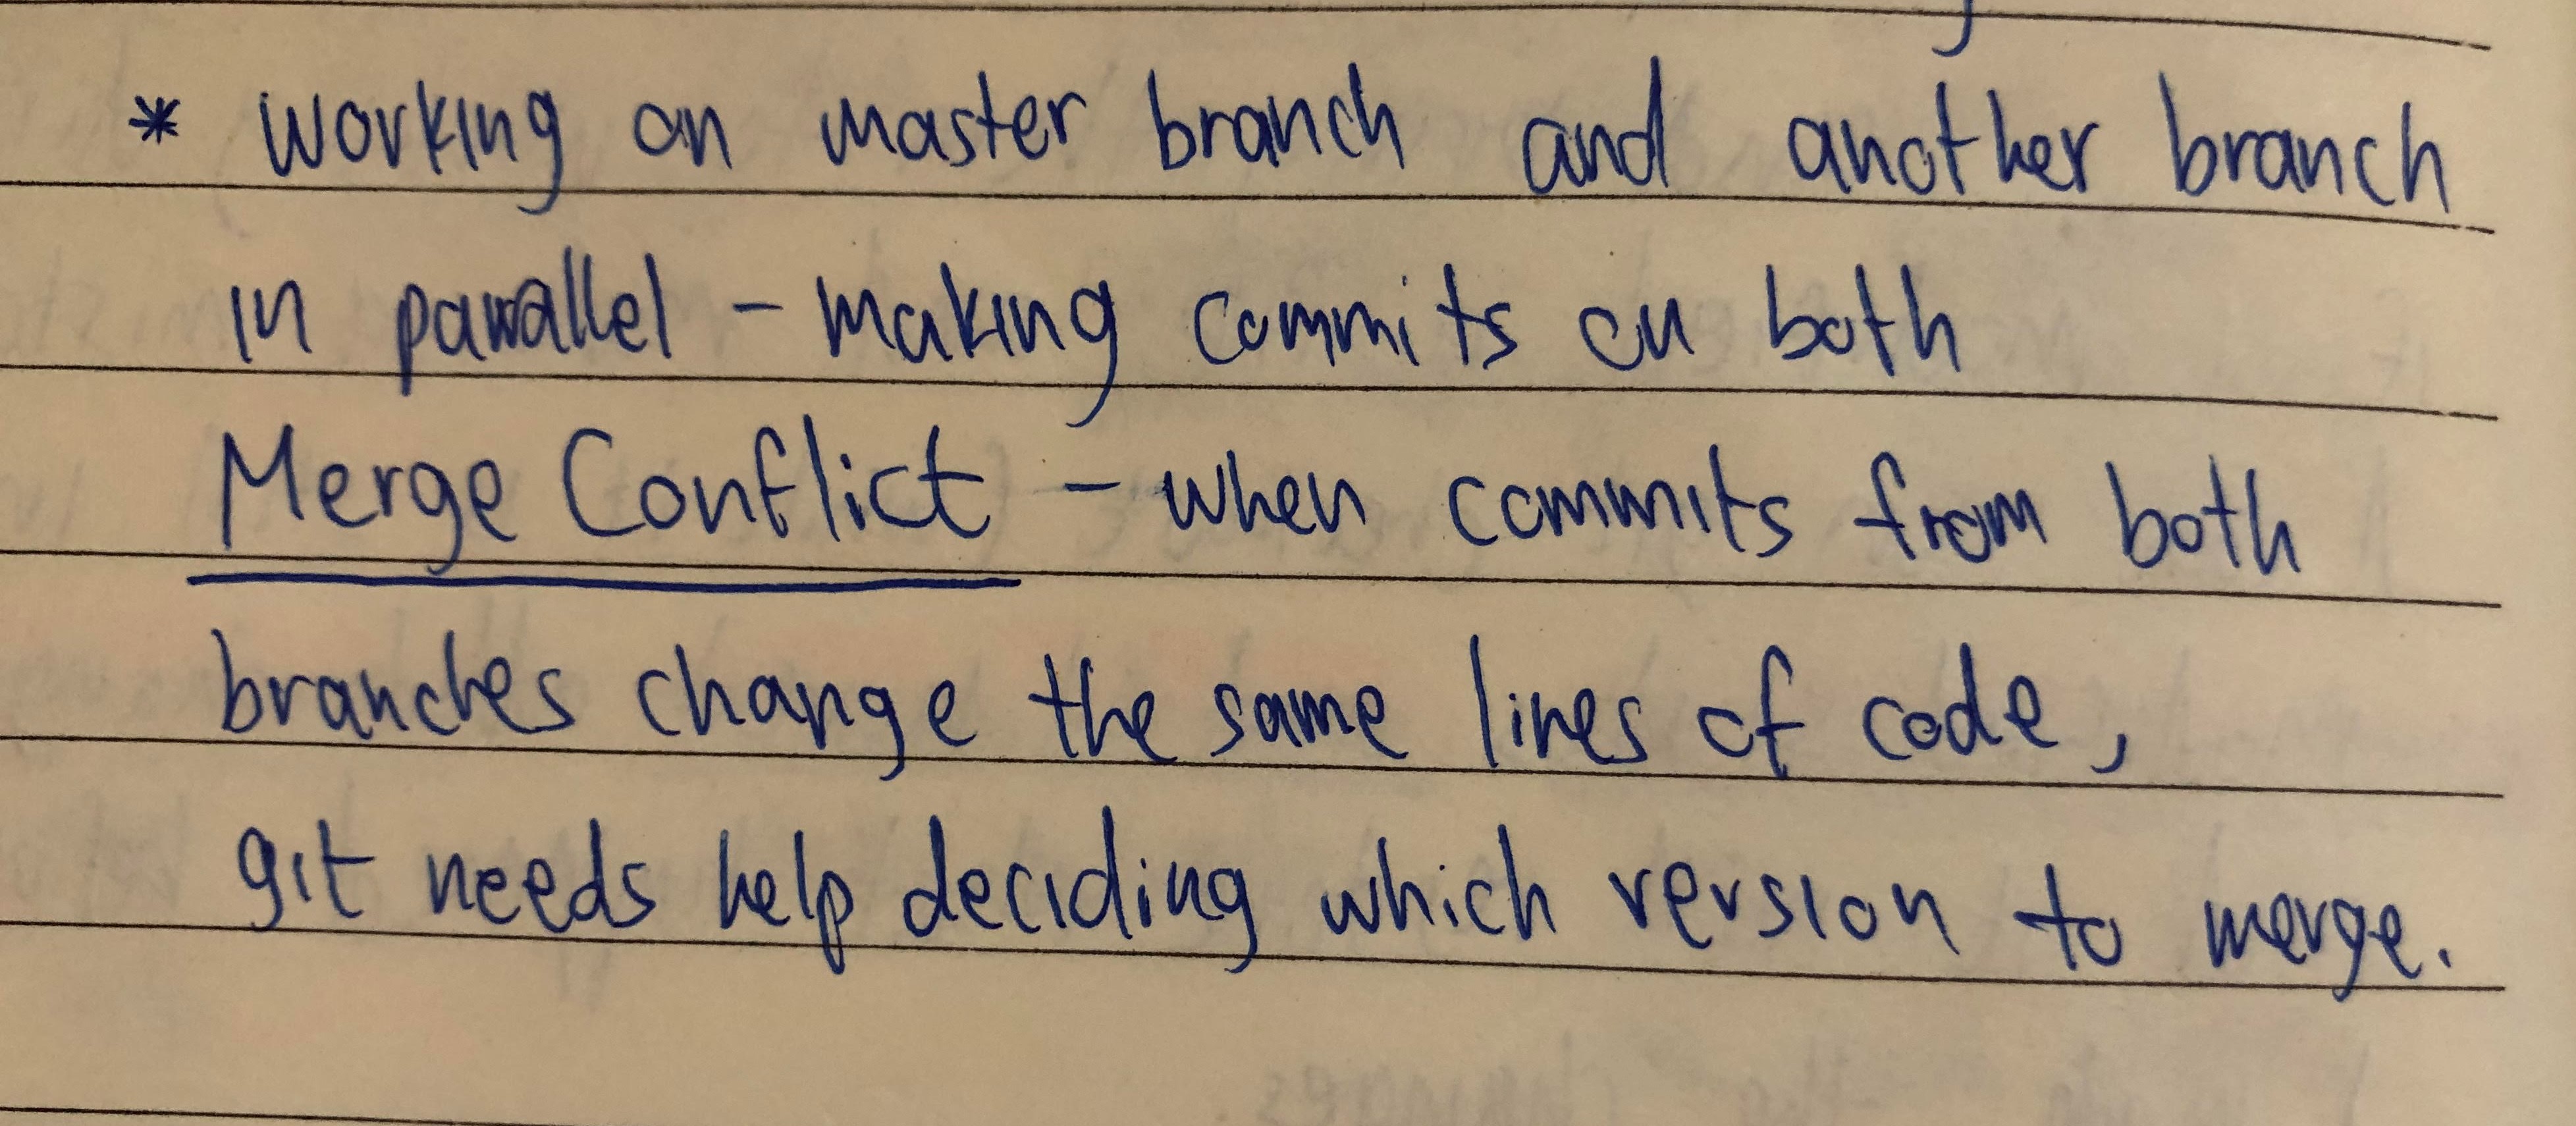 * Working on master branch and another branch
in parallel - making commits on both
Merge Conflict - when commits from both
branches change the same lines of code,
git needs help deciding which version to merge.